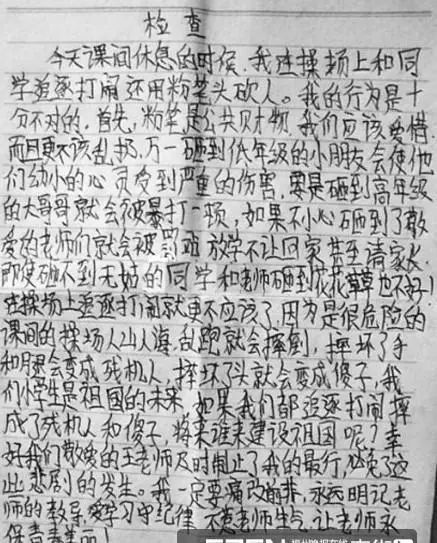 检查
今天课间休息的时候,我在操场上和同
学追逐打闹还用粉笔头砍人。我的行为是十
分不对的,首先,粉笔是公共财物,我们应该爱惜,
而且更不该乱扔,万一砸到低年级的小朋友会使他
们幼小的心灵受到严重的伤害,要是砸到高年级
的大哥哥就会被暴打一顿,如果不小心砸到了敬
爱的老师们就会被罚站放学不让回家甚至请家长.
即使砸不到无辜的同学和老师砸到花花草草也不好!
在操场上追逐打闹就更不应该了,因为是很危险的
课间的操场人山人海,乱跑就会摔倒,摔坏了手
和腿会变成残机人,摔坏了头就会变成傻子,我
们小学生是祖国的未来,如果我们都追逐打闹摔
成了残机人和傻子,将来谁来建设祖国呢?幸
好我们敬爱的王老师及时制止了我的最行,避免了这
些悲剧的发生。我一定要痛改前非,永远明记老
师的教导,学习守纪律不惹老师生气,让老师永
保青春美丽!